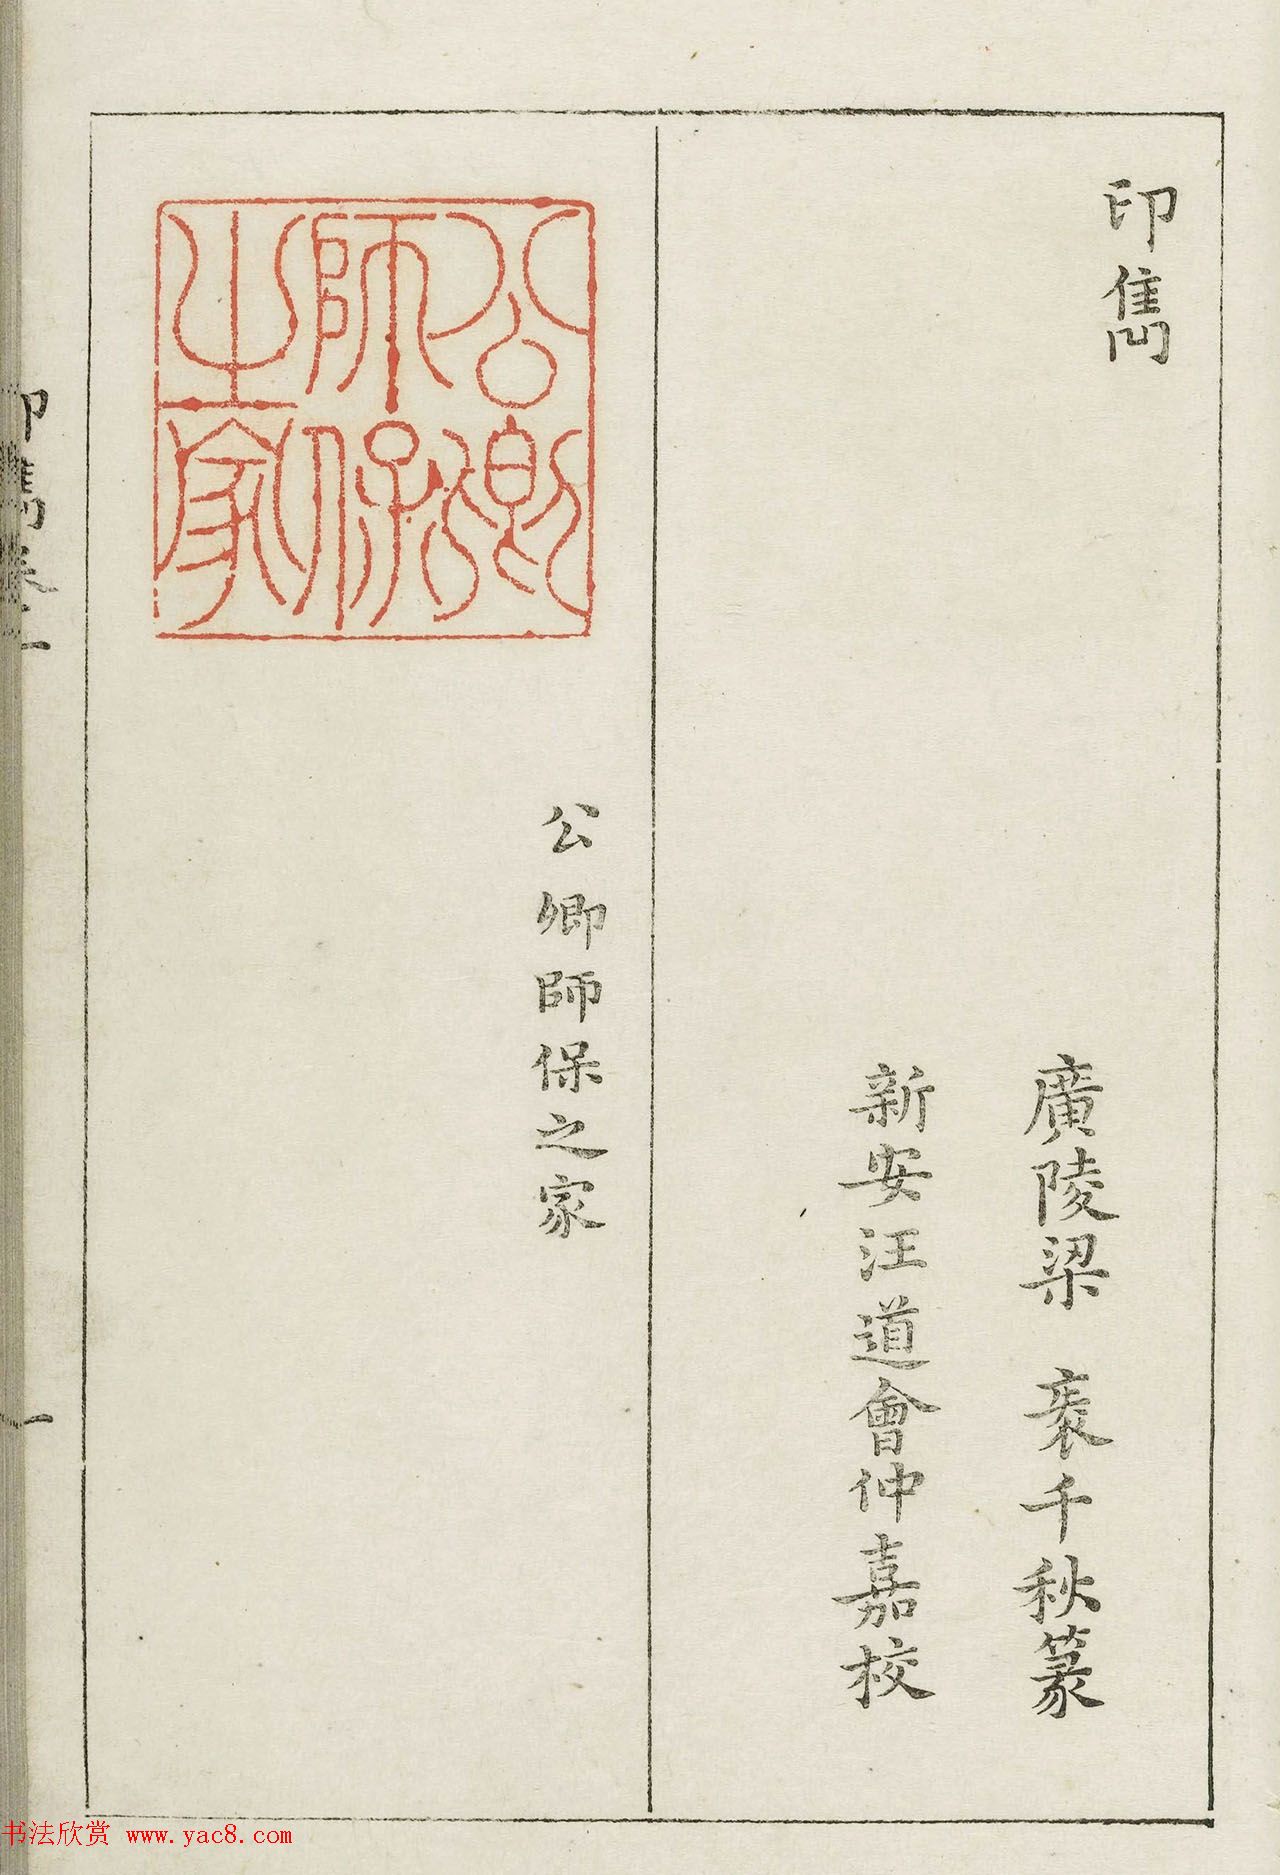 印雋
廣陵梁 袠千秋篆
新安汪道會仲嘉校
公卿師保之家
公卿師保之家
印雋卷
一
书法欣赏 www.yac8.com